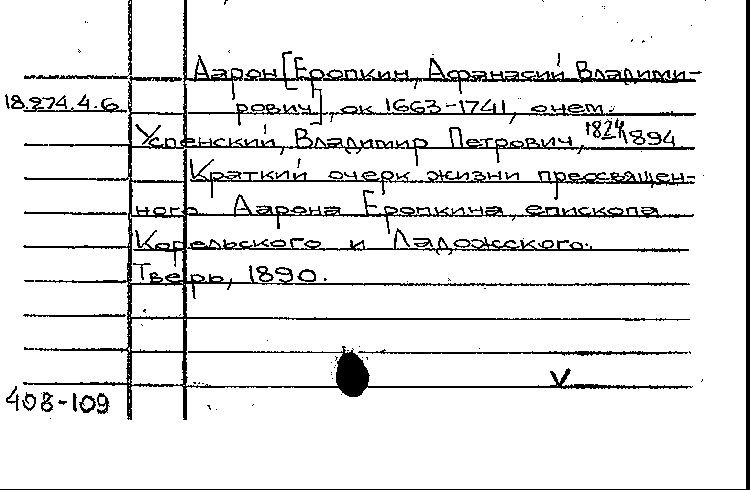 Аарон [Еропкин, Афанасий Владими-
18.274.4.6 рович], ок 1663-1741, о нем.
Успенский, Владимир Петрович, 1824-1894
Краткий очерк жизни преосвящен-
ного Аарона Еропкина, епископа
Корельского и Ладожского.
Тверь, 1890.
V
408-109